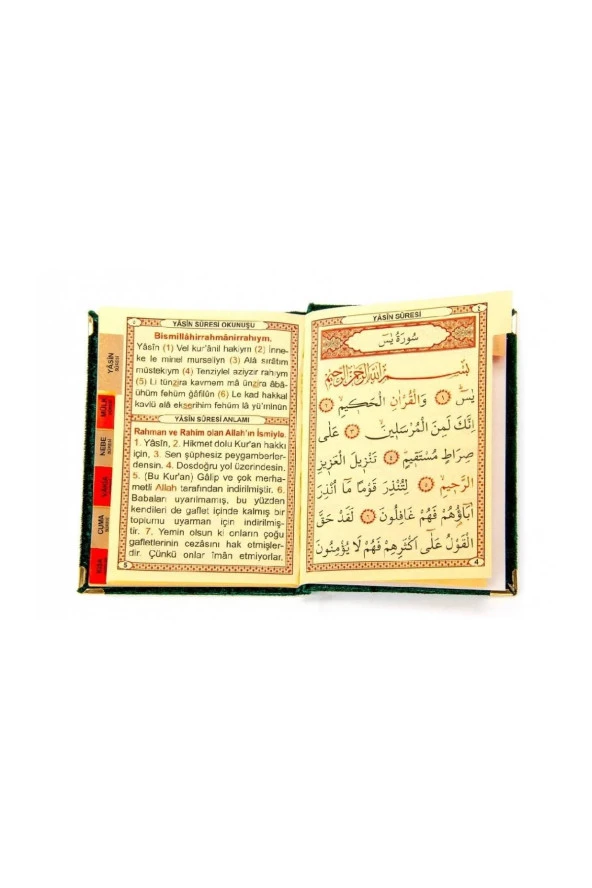 YÂSÎN SÛRESİ
سُورَةُ يٰسٓ
بِسْمِ اللّٰهِ الرَّحْمٰنِ الرَّحِيمِ
يٰسٓ ﴿١﴾ وَالْقُرْاٰنِ الْحَكِيمِ ﴿٢﴾
اِنَّكَ لَمِنَ الْمُرْسَلِينَ ﴿٣﴾ عَلٰى
صِرَاطٍ مُسْتَقِيمٍ ﴿٤﴾ تَنْزِيلَ الْعَزِيزِ
الرَّحِيمِ ﴿٥﴾ لِتُنْذِرَ قَوْمًا مَٓا اُنْذِرَ
اٰبَٓاؤُ۬هُمْ فَهُمْ غَافِلُونَ ﴿٦﴾ لَقَدْ حَقَّ
الْقَوْلُ عَلٰٓى اَكْثَرِهِمْ فَهُمْ لَا يُؤْمِنُونَ
4
YÂSİN SÛRESİ OKUNUŞU
Bismillâhirrahmânirrahıym.
Yâsîn (1) Vel kur'ânil hakiym (2) İnne-
ke le minel murseliyn (3) Alâ sırâtım
müstekıym (4) Tenziylel aziyzir rahıym
(5) Li tünzira kavmem mâ ünzira âbâ-
ühüm fehüm ğâfilûn (6) Le kad hakkal
kavlü alâ ekserihim fehüm lâ yü'minûn
YÂSİN SÛRESİ ANLAMI
Rahman ve Rahim olan Allah'ın İsmiyle.
1. Yâsîn, 2. Hikmet dolu Kur'an hakkı
için, 3. Sen şüphesiz peygamberler-
densin. 4. Dosdoğru yol üzerindesin.
5. (Bu Kur'an) Gâlip ve çok merha-
metli Allah tarafından indirilmiştir. 6.
Babaları uyarılmamış, bu yüzden
kendileri de gaflet içinde kalmış bir
toplumu uyarman için indirilmiş-
tir. 7. Yemin olsun ki onların çoğu
gafletlerinin cezâsını hak etmişler-
dir. Çünkü onlar îmân etmiyorlar.
5
YÂSİN
MÜLK
NEBE
CUMA